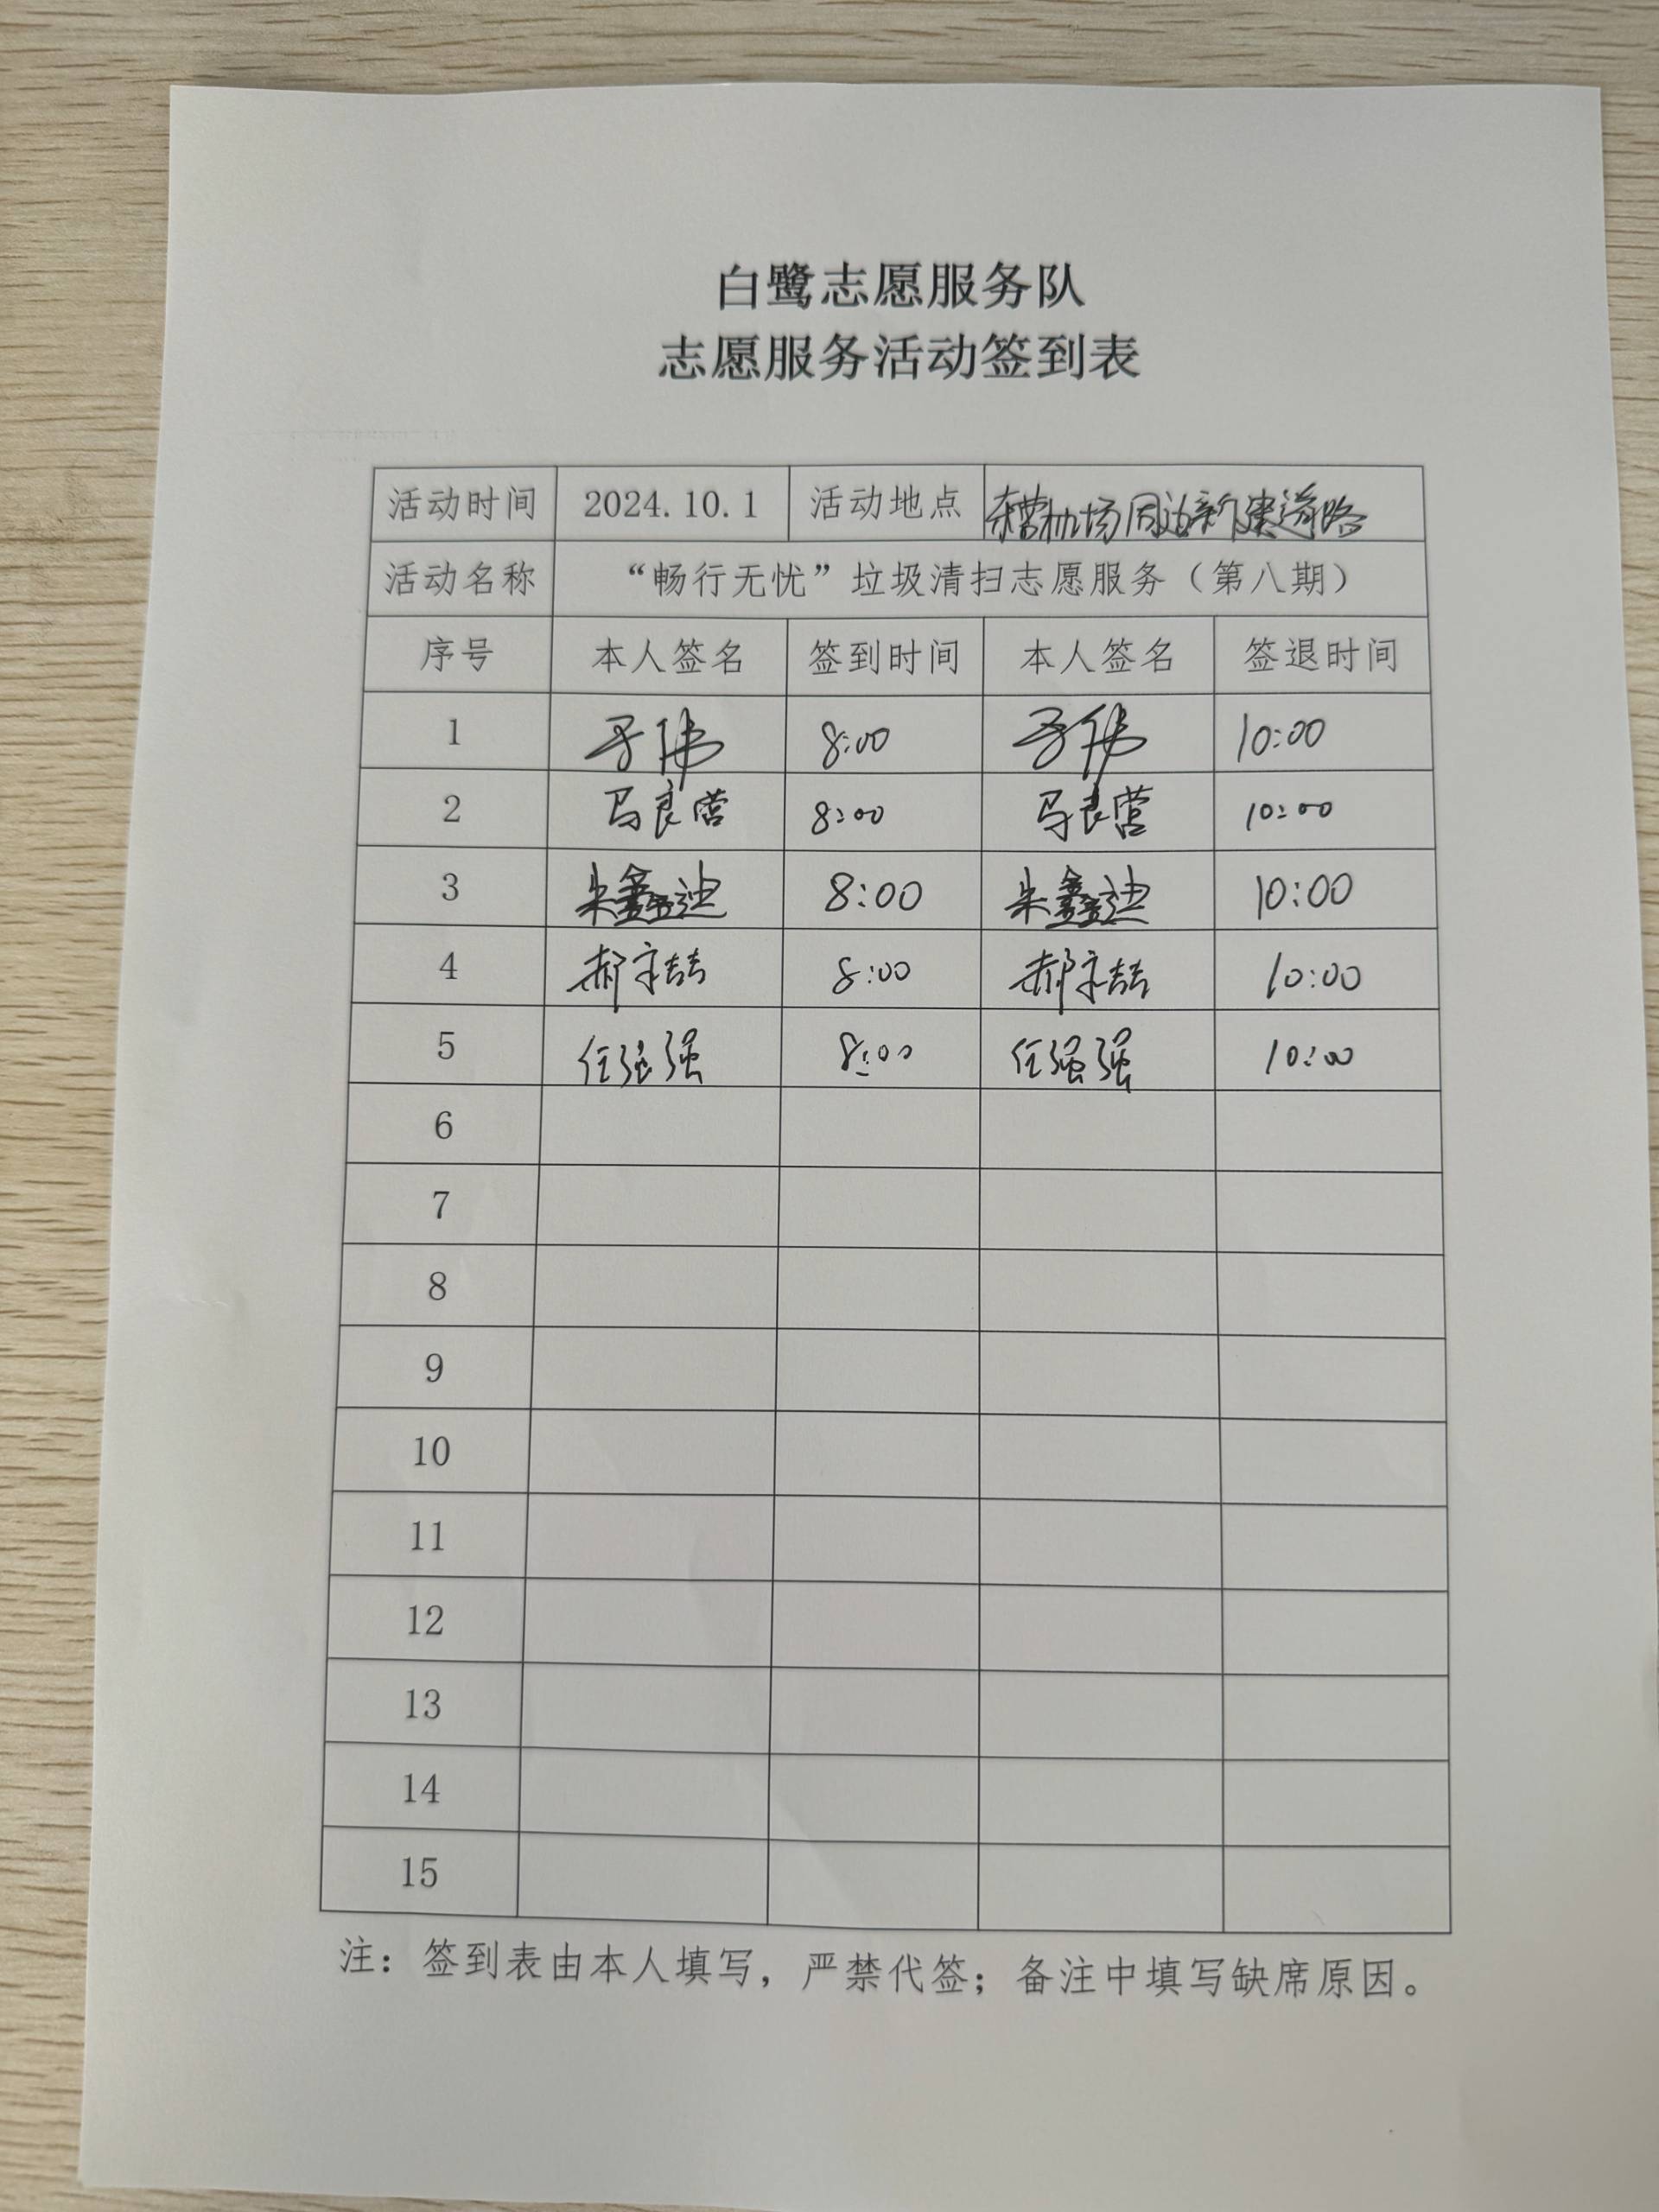 白鹭志愿服务队
志愿服务活动签到表
活动时间 2024.10.1 活动地点 东营机场周边新建道路
活动名称 “畅行无忧”垃圾清扫志愿服务（第八期）
序号 本人签名 签到时间 本人签名 签退时间
1 8:00 10:00
2 马良营 8:00 马良营 10:00
3 朱鑫迪 8:00 朱鑫迪 10:00
4 郝宇喆 8:00 郝宇喆 10:00
5 任强强 8:00 任强强 10:00
6
7
8
9
10
11
12
13
14
15
注：签到表由本人填写，严禁代签；备注中填写缺席原因。